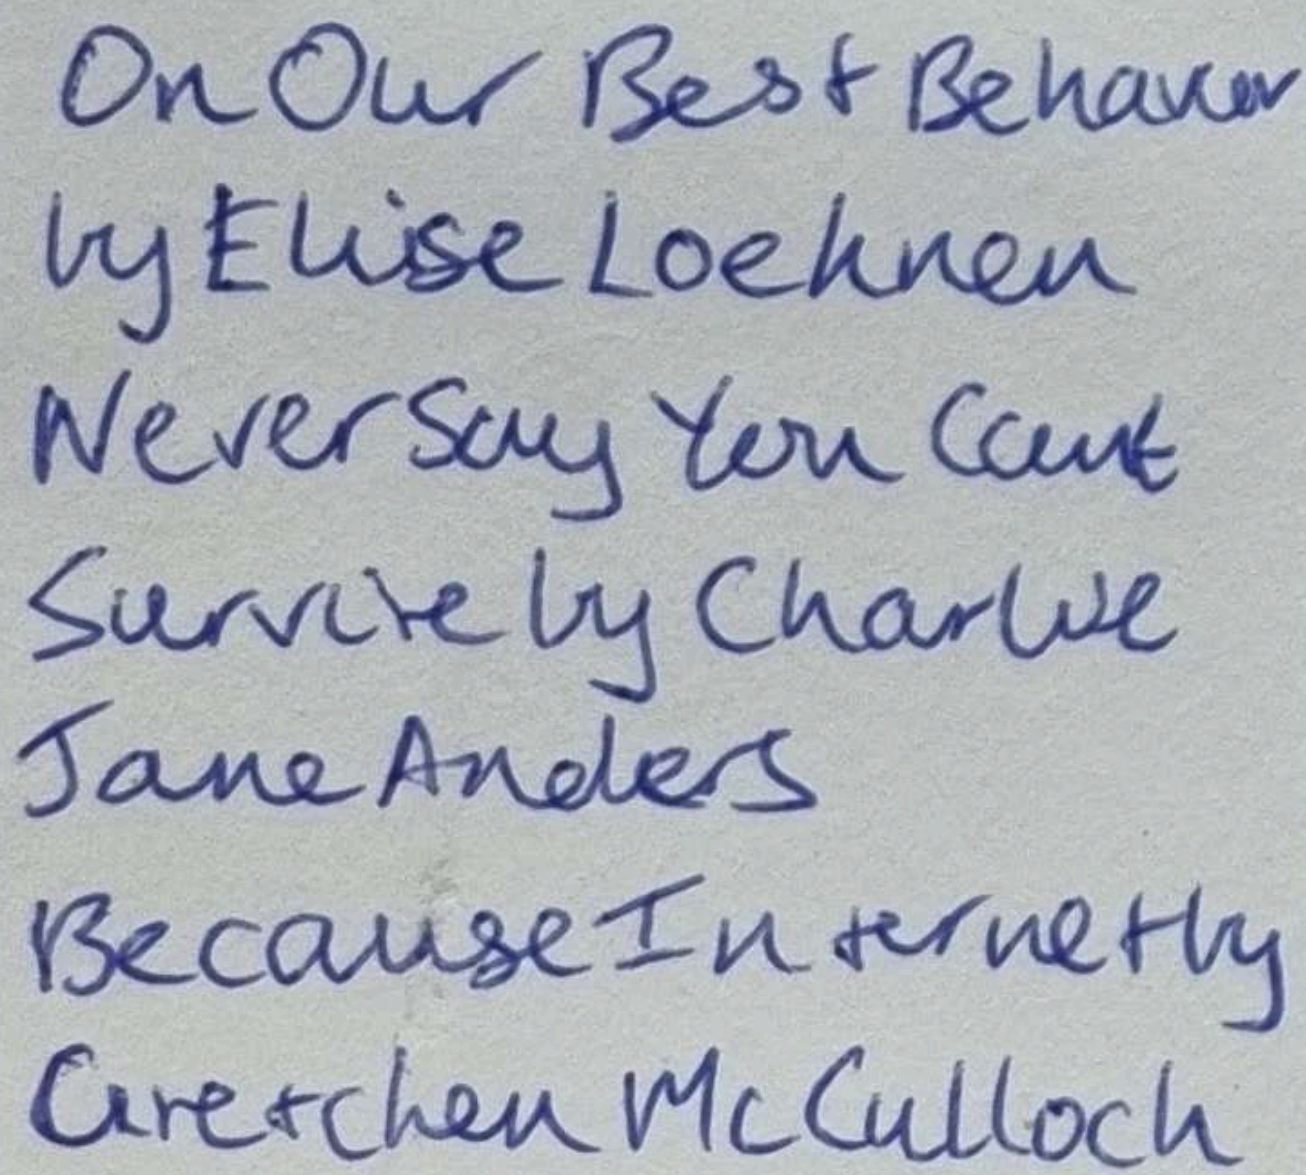 On Our Best Behavior
by Elise Loehnen
Never Say You Cant
Survive by Charlie
Jane Anders
Because Internet by
Gretchen McCulloch